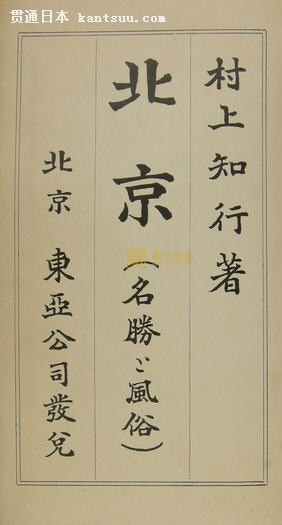 贯通日本 kantsuu.com
村上知行著
北京(名勝と風俗)
北京 東亞公司發兌